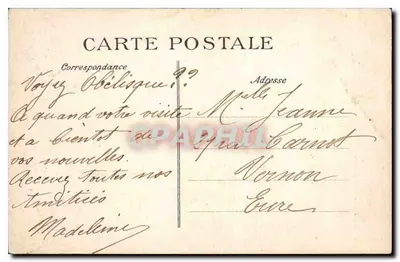 CARTE POSTALE
Correspondance
Adresse
Voyez Obélisque ??
A quand votre visite
et a bientot de
vos nouvelles.
Recevez toutes nos
Amitiées
Madeleine
Mlle Jeanne
Carnot
Vernon
Eure
CPAPHIL